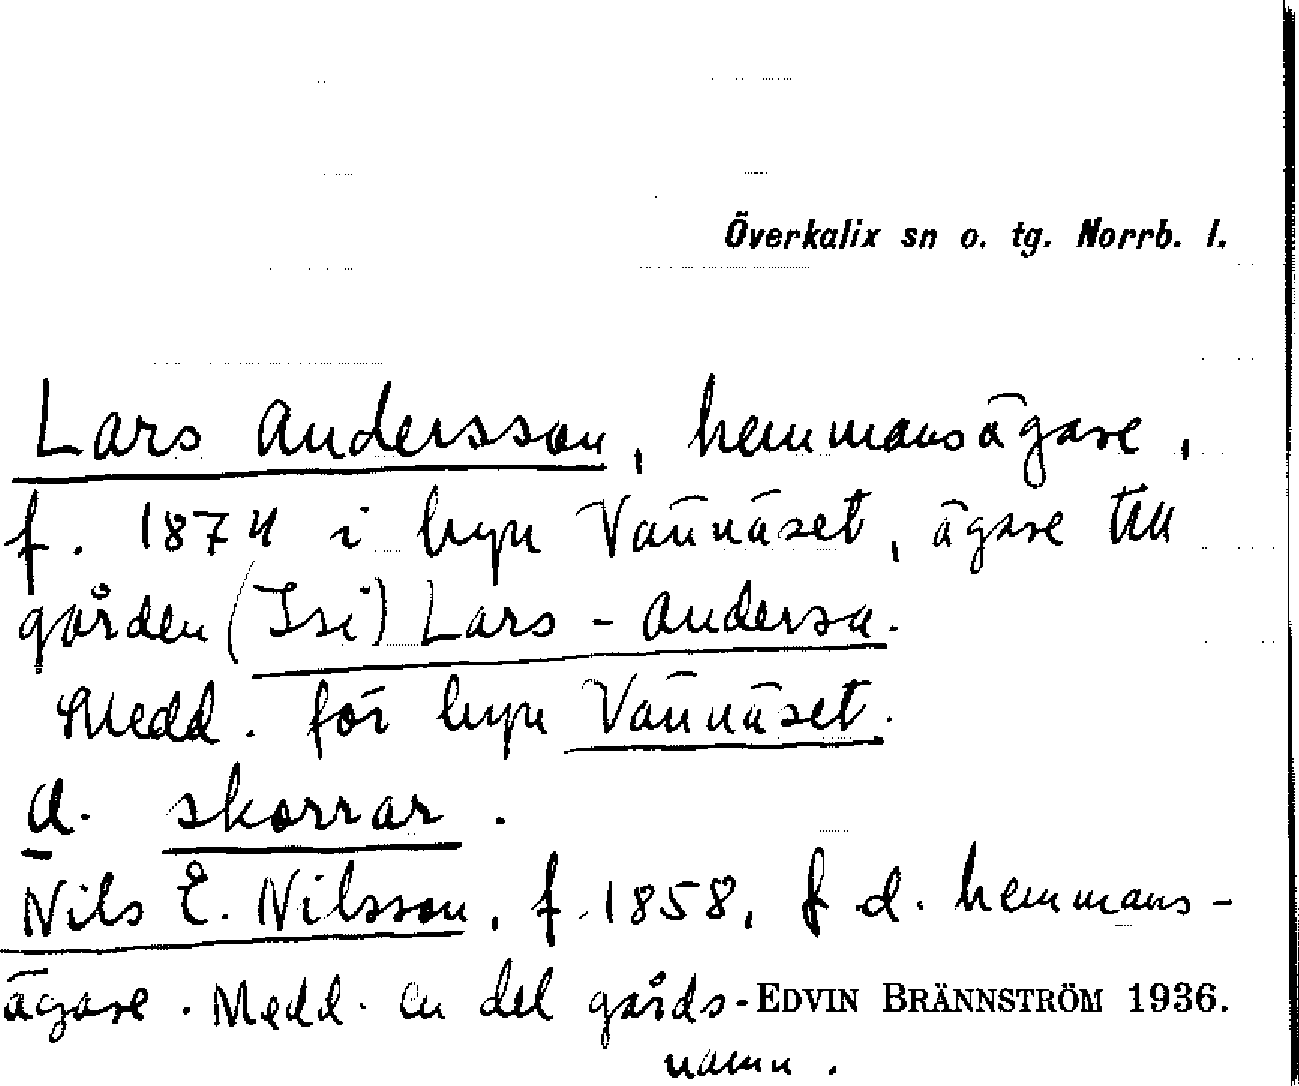 Överkalix sn o. tg. Norrb. l.
Lars Andersson, hemmansägare,
f. 1874 i byn Vännäset, ägare till
gården (Isi) Lars-Andersa.
Medd. för byn Vännäset.
A. skorrar.
Nils E. Nilsson, f. 1858, f d. hemmans-
ägare. Medd. en del gårds-
namn.
EDVIN BRÄNNSTRÖM 1936.